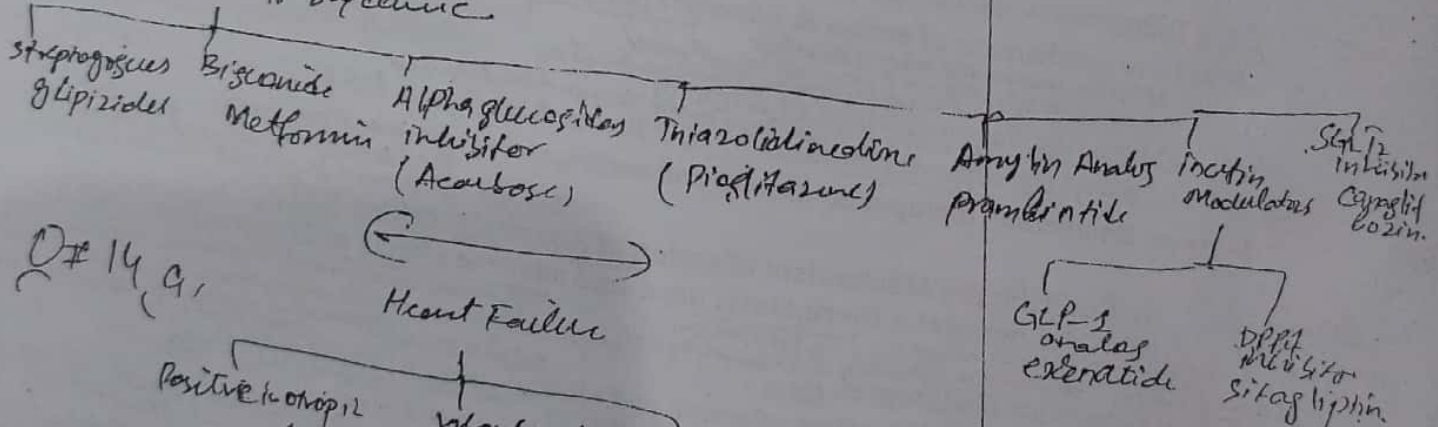 streprogogues
glipizides
Biguanide
Metformin
Alphaglucosides
inhibitor
(Acarbose)
Thiazolidinedione
(Pioglitazone)
Amylin Analog
pramlintide
incretin
Modulators
SGLT2
inhibitor
Canaglif
lozin.
GLP-1
analog
exenatide
DPP4
inhibitor
sitagliptin.
Q# 14 a,
Heart Failure
Positive inotropic